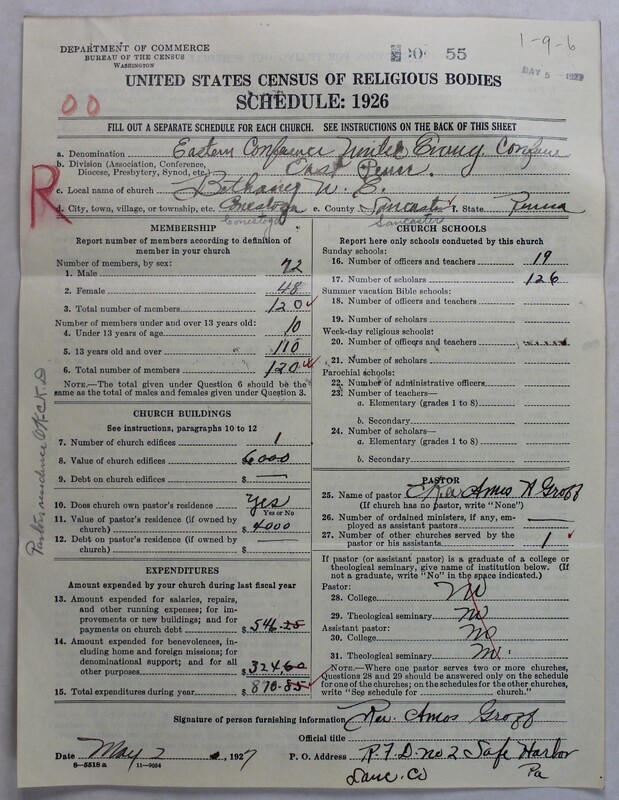 1-9-6
DEPARTMENT OF COMMERCE
BUREAU OF THE CENSUS
WASHINGTON
55
MAY 5 1927
UNITED STATES CENSUS OF RELIGIOUS BODIES
SCHEDULE: 1926
00
FILL OUT A SEPARATE SCHEDULE FOR EACH CHURCH. SEE INSTRUCTIONS ON THE BACK OF THIS SHEET
R
a. Denomination Eastern Conference United Evang. Conf
b. Division (Association, Conference, Diocese, Presbytery, Synod, etc.) East Penn.
c. Local name of church Bethany U. E.
d. City, town, village, or township, etc. Conestoga e. County Lancaster f. State Penna
Conestoga Lancaster
MEMBERSHIP
Report number of members according to definition of member in your church
Number of members, by sex:
1. Male 72
2. Female 48
3. Total number of members 120
Number of members under and over 13 years old:
4. Under 13 years of age 10
5. 13 years old and over 110
6. Total number of members 120
NOTE.—The total given under Question 6 should be the same as the total of males and females given under Question 3.
CHURCH BUILDINGS
See instructions, paragraphs 10 to 12
7. Number of church edifices 1
8. Value of church edifices $ 6000
9. Debt on church edifices $ —
10. Does church own pastor's residence? Yes
Yes or No
11. Value of pastor's residence (if owned by church) $ 4000
12. Debt on pastor's residence (if owned by church) $ —
EXPENDITURES
Amount expended by your church during last fiscal year
13. Amount expended for salaries, repairs, and other running expenses; for improvements or new buildings; and for payments on church debt $ 546.25
14. Amount expended for benevolences, including home and foreign missions; for denominational support; and for all other purposes $ 324.60
15. Total expenditures during year $ 870.85
CHURCH SCHOOLS
Report here only schools conducted by this church
Sunday schools:
16. Number of officers and teachers 19
17. Number of scholars 126
Summer vacation Bible schools:
18. Number of officers and teachers
19. Number of scholars
Week-day religious schools:
20. Number of officers and teachers
21. Number of scholars
Parochial schools:
22. Number of administrative officers
23. Number of teachers—
a. Elementary (grades 1 to 8)
b. Secondary
24. Number of scholars—
a. Elementary (grades 1 to 8)
b. Secondary
PASTOR
25. Name of pastor Rev Amos H Groff
(If church has no pastor, write "None")
26. Number of ordained ministers, if any, employed as assistant pastors —
27. Number of other churches served by the pastor or his assistants 1
If pastor (or assistant pastor) is a graduate of a college or theological seminary, give name of institution below. (If not a graduate, write "No" in the space indicated.)
Pastor:
28. College No
29. Theological seminary No
Assistant pastor:
30. College No
31. Theological seminary No
NOTE.—Where one pastor serves two or more churches, Questions 28 and 29 should be answered only on the schedule for one of the churches; on the schedules for the other churches, write "See schedule for church."
Signature of person furnishing information Rev. Amos Groff
Official title
Date May 2, 1927 P. O. Address R.F.D. no 2 Safe Harbor
Lanc. Co Pa
8—5518 a 11—9054